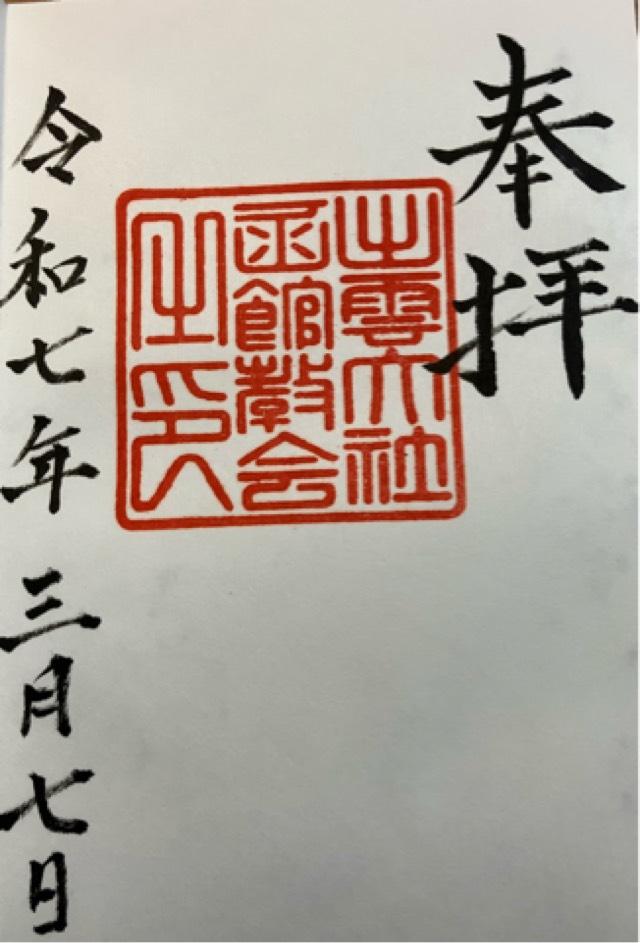 奉拝
出雲大社
函館教会
之印
令和七年三月七日